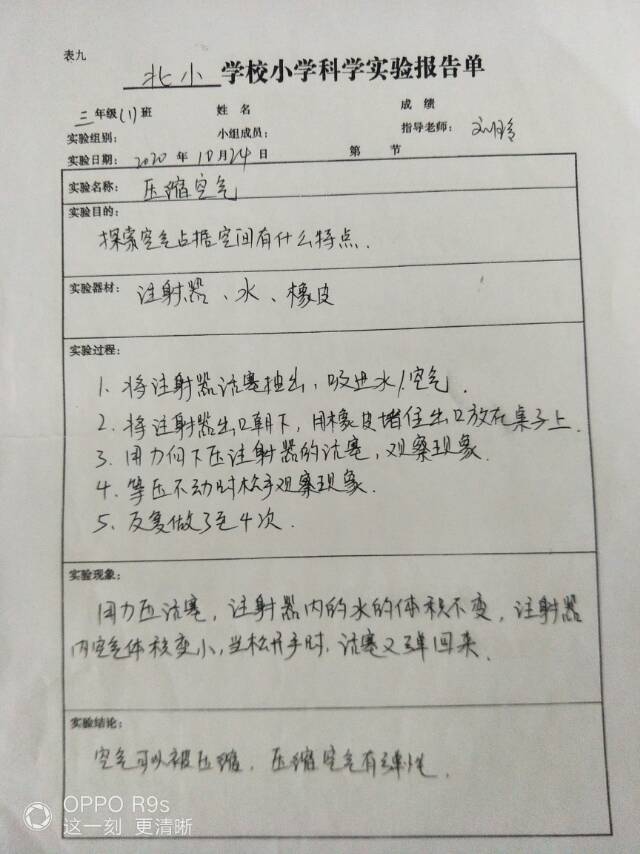 表九
北小 学校小学科学实验报告单
三年级(1)班 姓名 成绩
实验组别： 小组成员： 指导老师： 刘玲
实验日期：2020年10月24日 第 节
实验名称： 压缩空气
实验目的：
探索空气占据空间有什么特点.
实验器材： 注射器、水、橡皮
实验过程：
1. 将注射器活塞抽出，吸进水/空气.
2. 将注射器出口朝下，用橡皮堵住出口放在桌子上.
3. 用力向下压注射器的活塞，观察现象.
4. 等压不动时松手观察现象.
5. 反复做3至4次.
实验现象：
用力压活塞，注射器内的水的体积不变，注射器
内空气体积变小，当松开手时，活塞又弹回来.
实验结论：
空气可以被压缩，压缩空气有弹性.
OPPO R9s
这一刻 更清晰